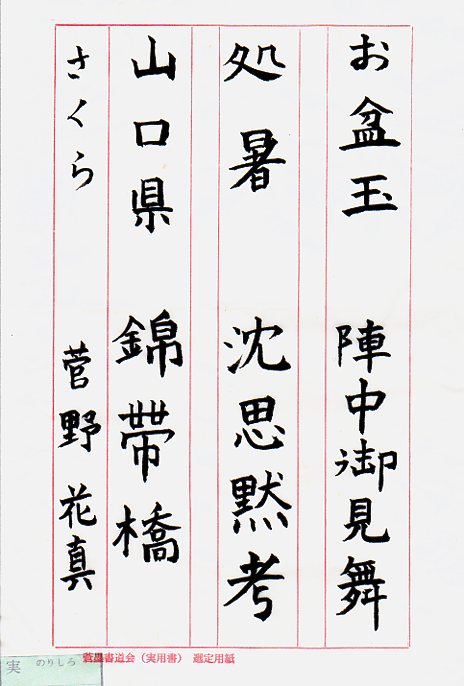 お盆玉 陣中御見舞
処暑 沈思黙考
山口県 錦帯橋
さくら 菅野花真
蒼墨書道会(実用書) 選定用紙
実 のりしろ